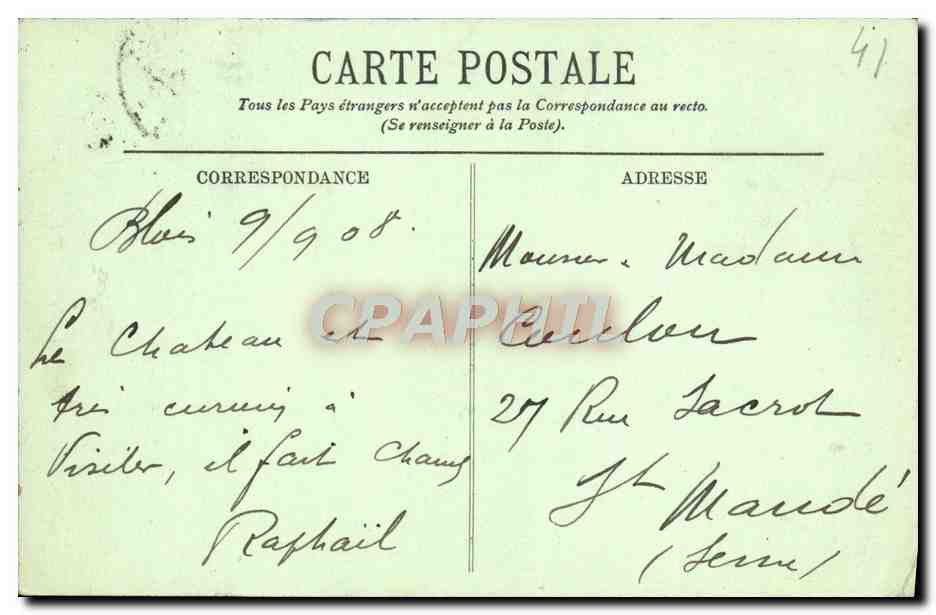 41
CARTE POSTALE
Tous les Pays étrangers n'acceptent pas la Correspondance au recto.
(Se renseigner à la Poste).
CORRESPONDANCE
Blois 9/9 08.
Le Chateau est
très curieux à
Visiter, il fait chaud
Raphaël
ADRESSE
Monsieur & Madame
Coulon
27 Rue Sacrot
St Mandé
(Seine)
CPAPHIL